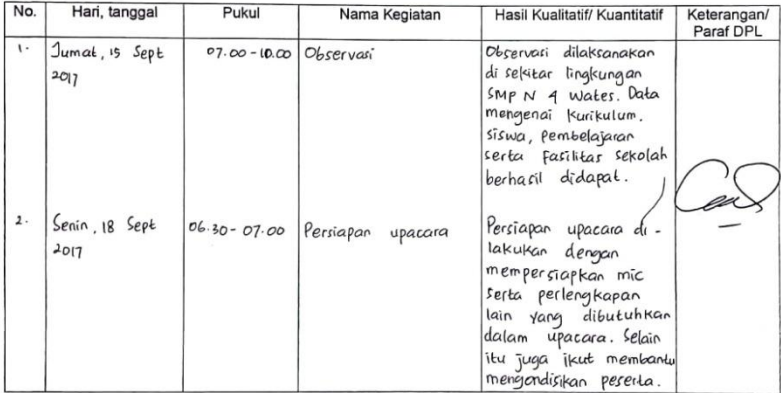 No. Hari, tanggal Pukul Nama Kegiatan Hasil Kualitatif/ Kuantitatif Keterangan/
Paraf DPL
1. Jumat, 15 Sept 07.00 - 10.00 Observasi Observasi dilaksanakan
2017 di sekitar lingkungan
SMP N 4 Wates. Data
mengenai Kurikulum,
siswa, pembelajaran
serta fasilitas sekolah
berhasil didapat.
2. Senin, 18 Sept 06.30 - 07.00 Persiapan upacara Persiapan upacara di -
2017 lakukan dengan
mempersiapkan mic
serta perlengkapan
lain yang dibutuhkan
dalam upacara. Selain
itu juga ikut membantu
mengondisikan peserta.